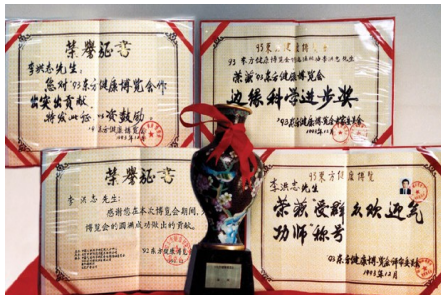 荣誉证书
李洪志先生：
您对'93东方健康博览会作
出突出贡献，
特发此证，以资鼓励。
'93东方健康博览会
1993.12月
93东方健康博览会
李洪志先生
荣获'93东方健康博览会
边缘科学进步奖
'93东方健康博览会评审委员会
1993年12月
荣誉证书
李洪志先生：
感谢您在本次博览会期间，
博览会的圆满成功做出的贡献。
'92东方健康博览会
93东方健康博览
李洪志先生
荣获受群众欢迎气
功师称号
'93东方健康博览会评审委员会
1993年12月